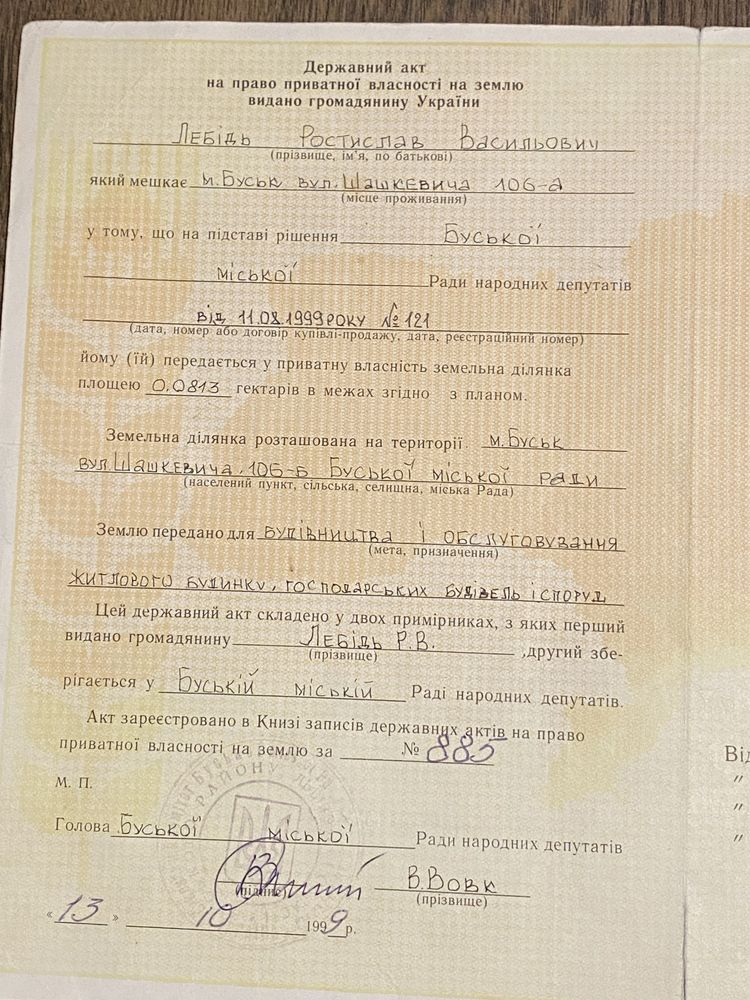 Державний акт
на право приватної власності на землю
видано громадянину України
Лебідь Ростислав Васильович
(прізвище, ім'я, по батькові)
який мешкає м.Буськ вул.Шашкевича 106-а
(місце проживання)
у тому, що на підставі рішення Буської
міської Ради народних депутатів
від 11.08.1999 року № 121
(дата, номер або договір купівлі-продажу, дата, реєстраційний номер)
йому (їй) передається у приватну власність земельна ділянка
площею 0,0813 гектарів в межах згідно з планом.
Земельна ділянка розташована на території м.Буськ
вул.Шашкевича, 106-Б Буської міської ради
(населений пункт, сільська, селищна, міська Рада)
Землю передано для будівництва і обслуговування
(мета, призначення)
житлового будинку, господарських будівель і споруд
Цей державний акт складено у двох примірниках, з яких перший
видано громадянину Лебідь Р.В. ,другий збе-
(прізвище)
рігається у Буській міській Раді народних депутатів.
Акт зареєстровано в Книзі записів державних актів на право
приватної власності на землю за № 885
М. П.
Голова Буської міської Ради народних депутатів
В.Вовк
(підпис) (прізвище)
« 13 » 10 1999 р.
Від
"
"
"
РАЙОНУ